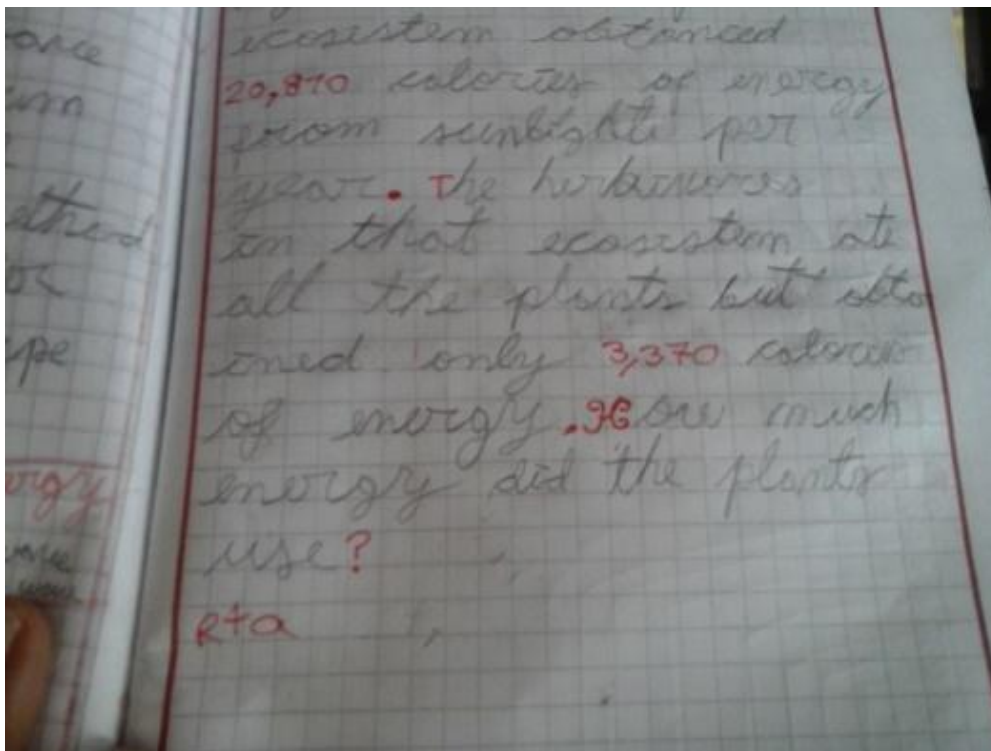 ecosistem obtanced
20,810 calories of energy
from sunlight per
year. The herbivores
in that ecosistem ate
all the plants but obta
ined only 3,370 calories
of energy. How much
energy did the plants
use?
Rta